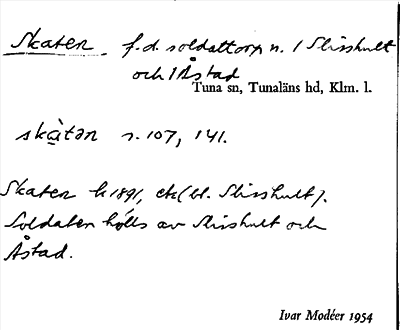 Skaten f.d. soldattorp n. 1 Slisshult
och 1 Åstad
Tuna sn, Tunaläns hd, Klm. l.
skàtən s. 107, 141.
Skaten k 1891, ek (bl. Slisshult).
Soldaten hölls av Slisshult och
Åstad.
Ivar Modéer 1954